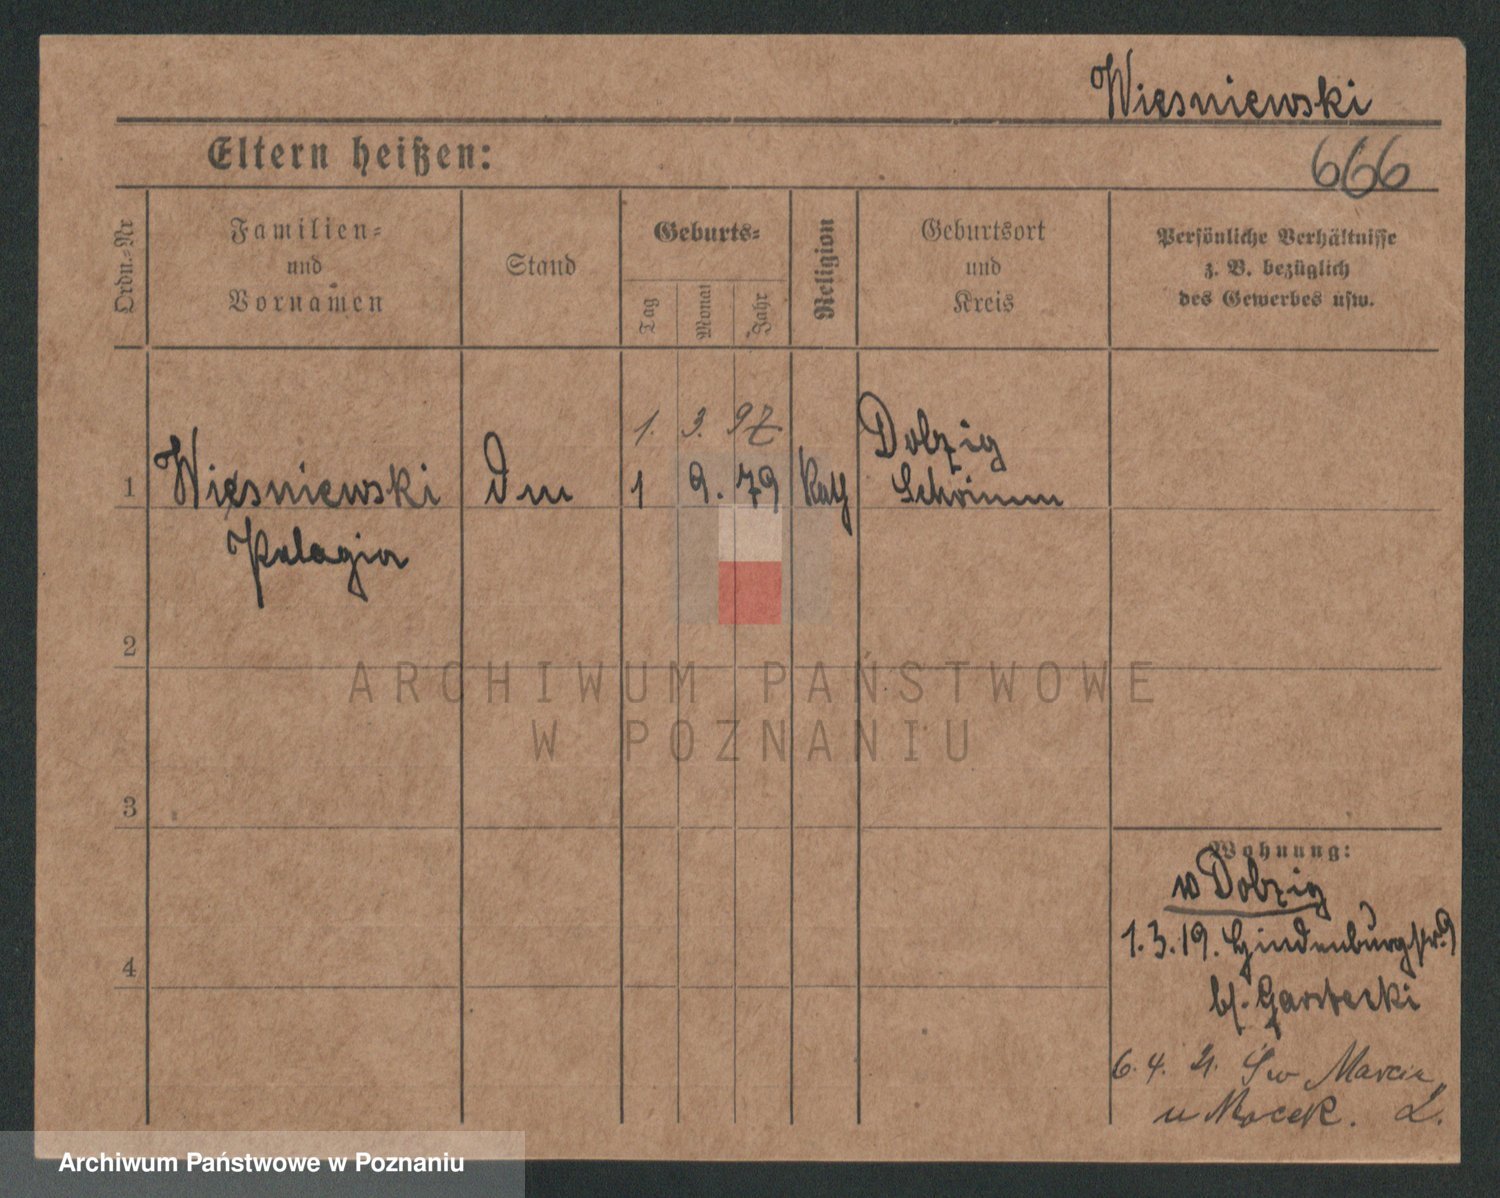 Wiesniewski
Eltern heißen:
666
Ordn.-Nr
Familien=
und
Vornamen
Stand
Geburts=
Tag
Monat
Jahr
Religion
Geburtsort
und
Kreis
Persönliche Verhältnisse
z. B. bezüglich
des Gewerbes usw.
1. 3. 97.
1 Wiesniewski 1 9. 79 Kath Dolzig
Schrimm
Pelagia
2
3
4
Wohnung:
Dolzig
1.3.19. Hindenburgstr. 9
b/. Garstecki
6. 4. 21. Św Marcin
u Mocek.
ARCHIWUM PAŃSTWOWE
W POZNANIU
Archiwum Państwowe w Poznaniu